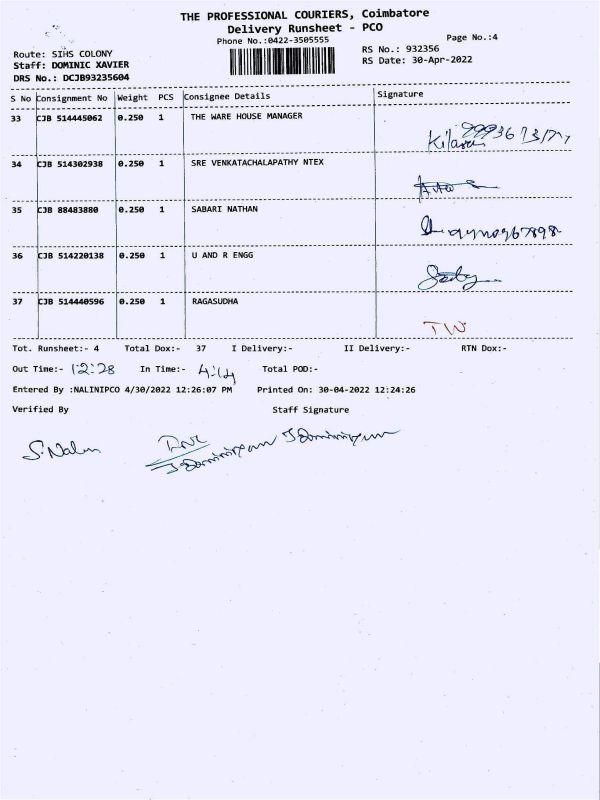 THE PROFESSIONAL COURIERS, Coimbatore
Delivery Runsheet - PCO
Phone No.:0422-3505555
Page No.:4
Route: SIHS COLONY
RS No.: 932356
Staff: DOMINIC XAVIER
RS Date: 30-Apr-2022
DRS No.: DCJB93235604
S No Consignment No Weight PCS Consignee Details Signature
33 CJB 514445062 0.250 1 THE WARE HOUSE MANAGER
34 CJB 514302938 0.250 1 SRE VENKATACHALAPATHY NTEX
35 CJB 88483880 0.250 1 SABARI NATHAN
36 CJB 514220138 0.250 1 U AND R ENGG
37 CJB 514440596 0.250 1 RAGASUDHA
TW
Tot. Runsheet:- 4 Total Dox:- 37 I Delivery:- II Delivery:- RTN Dox:-
Out Time:- 12:28 In Time:- 4:14 Total POD:-
Entered By :NALINIPCO 4/30/2022 12:26:07 PM Printed On: 30-04-2022 12:24:26
Verified By Staff Signature
S.Nalin